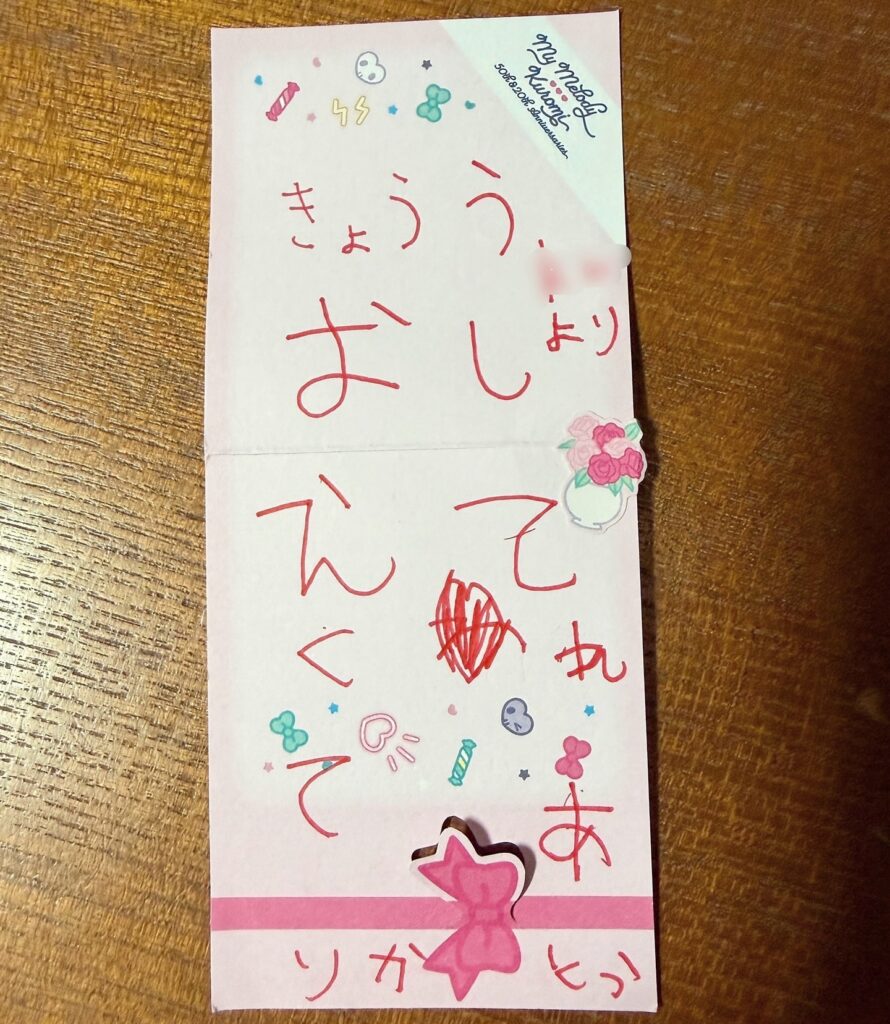 My Melody
Kuromi
50th & 20th Anniversaries
きょう う
より
おし
えて
くれ
てあ
りかとう